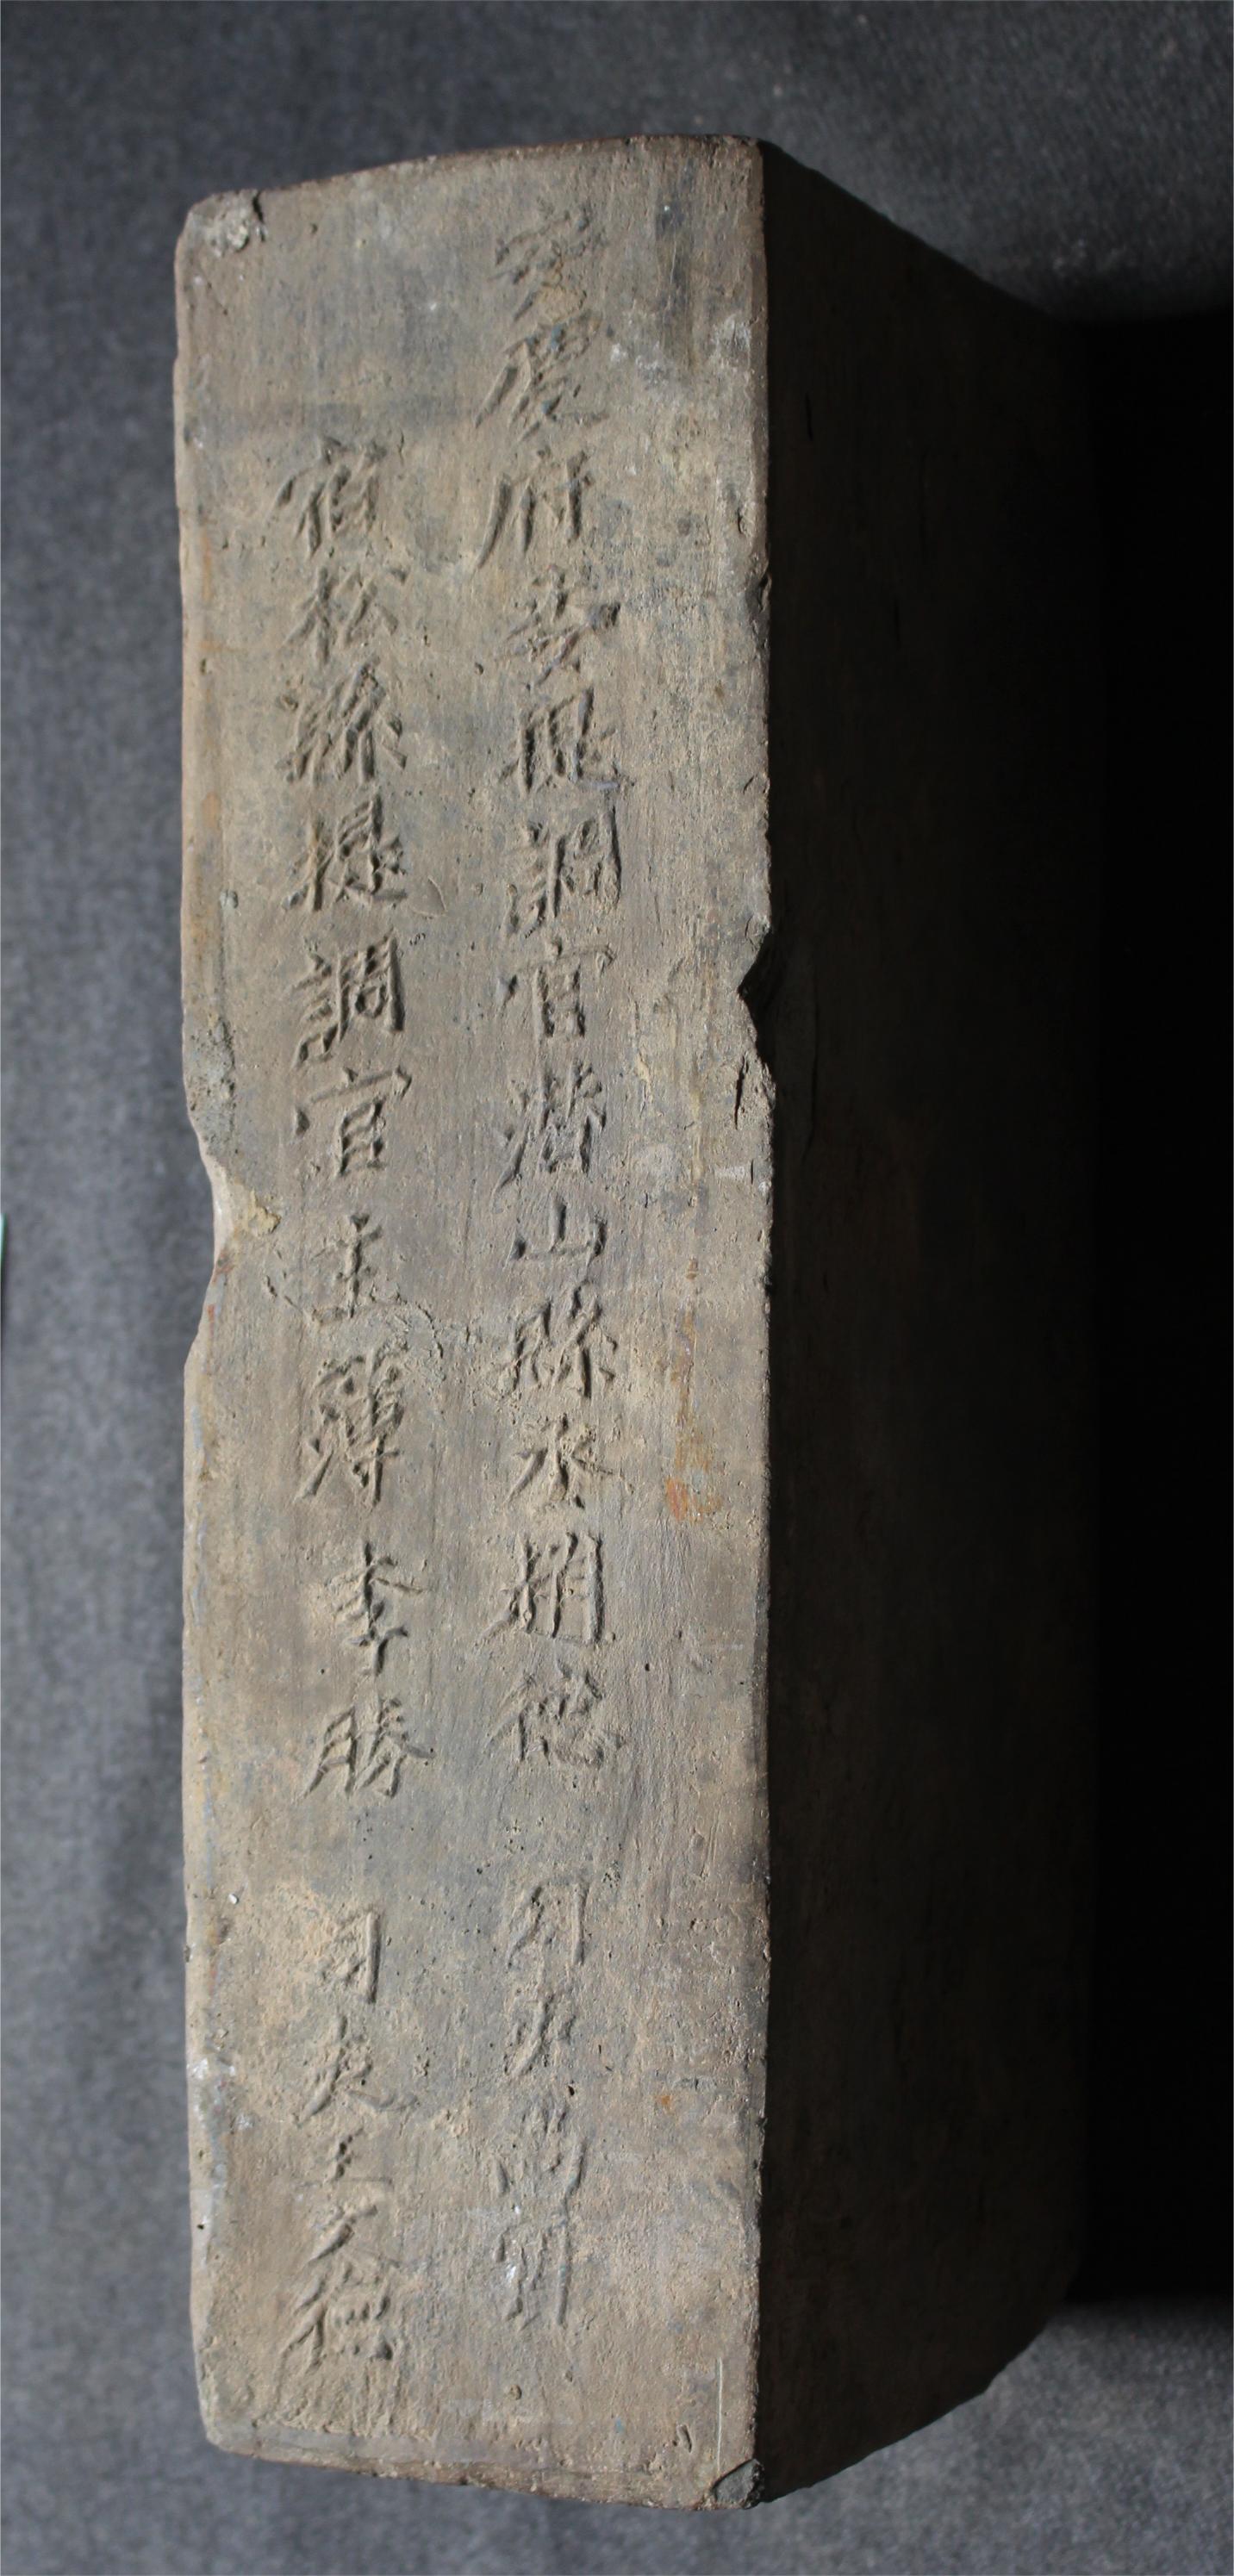 安慶府委提調官潛山縣丞趙德 司吏
宿松縣提調官主簿李勝 司吏王文德